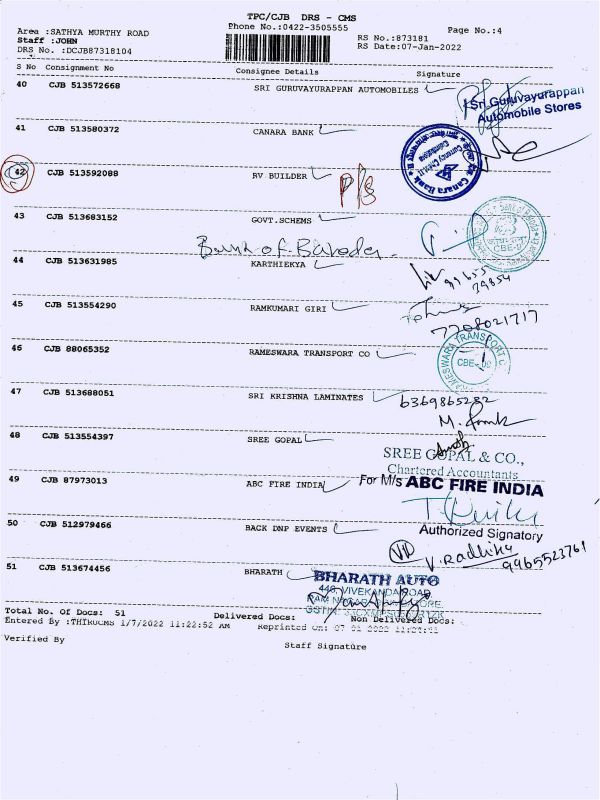 TPC/CJB DRS - CMS
Phone No.:0422-3505555
Page No.:4
Area :SATHYA MURTHY ROAD
Staff :JOHN
DRS No. :DCJB87318104
RS No.:873181
RS Date:07-Jan-2022
S No Consignment No Consignee Details Signature
40 CJB 513572668 SRI GURUVAYURAPPAN AUTOMOBILES
Sri Guruvayurappan
Automobile Stores
41 CJB 513580372 CANARA BANK
Canara Bank
42 CJB 513592088 RV BUILDER
43 CJB 513683152 GOVT.SCHEMS
Bank of Baroda
CBE
44 CJB 513631985 KARTHIEKYA
99655
79854
45 CJB 513554290 RAMKUMARI GIRI
7708021717
46 CJB 88065352 RAMESWARA TRANSPORT CO
RAMESWARA TRANSPORT CO
CBE
47 CJB 513688051 SRI KRISHNA LAMINATES
6369865282
48 CJB 513554397 SREE GOPAL
SREE GOPAL & CO.,
Chartered Accountants
49 CJB 87973013 ABC FIRE INDIA
For M/s ABC FIRE INDIA
Authorized Signatory
50 CJB 512979466 BACK DNP EVENTS
V. Radhika
9965523761
51 CJB 513674456 BHARATH
BHARATH AUTO
VIVEKANDA ROAD
Total No. Of Docs: 51 Delivered Docs: Non Delivered Docs:
Entered By :THIRUCMS 1/7/2022 11:22:52 AM Reprinted On:
Verified By
Staff Signature